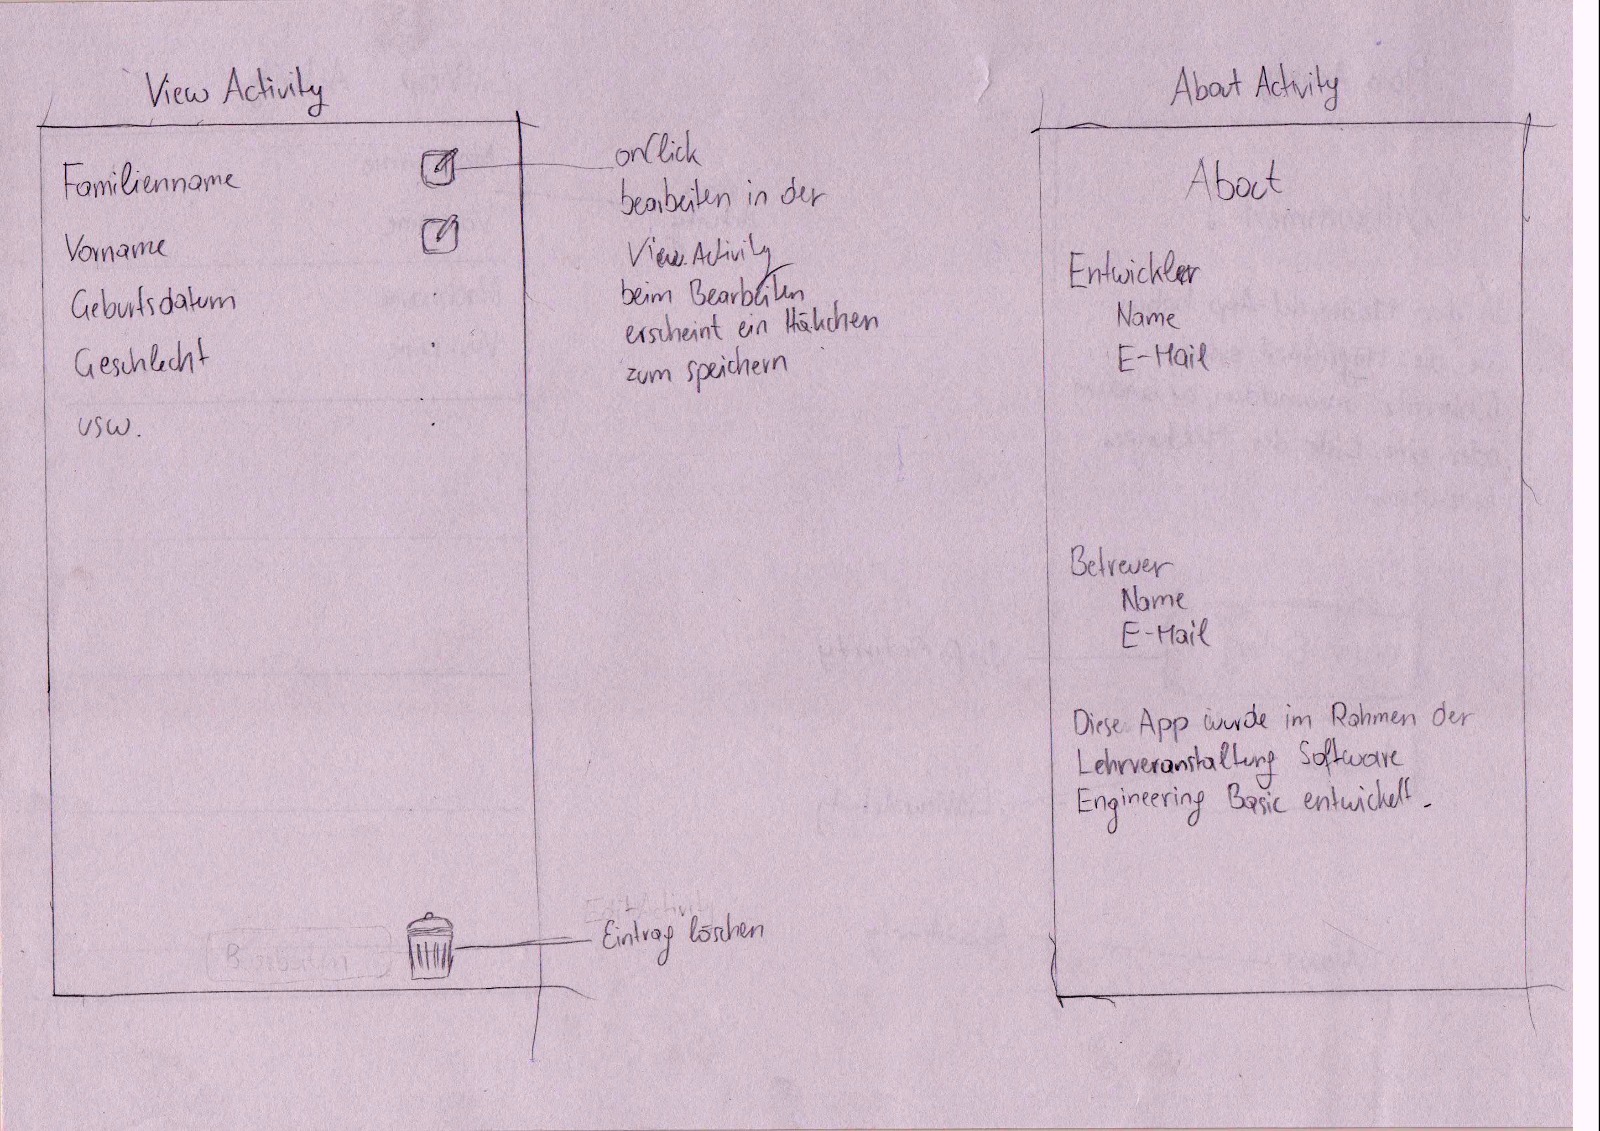 View Activity
Familienname
Vorname
Geburtsdatum
Geschlecht
usw.
onClick
bearbeiten in der
View Activity
beim Bearbeiten
erscheint ein Häkchen
zum speichern
Eintrag löschen
About Activity
About
Entwickler
Name
E-Mail
Betreuer
Name
E-Mail
Diese App wurde im Rahmen der
Lehrveranstaltung Software
Engineering Basic entwickelt.